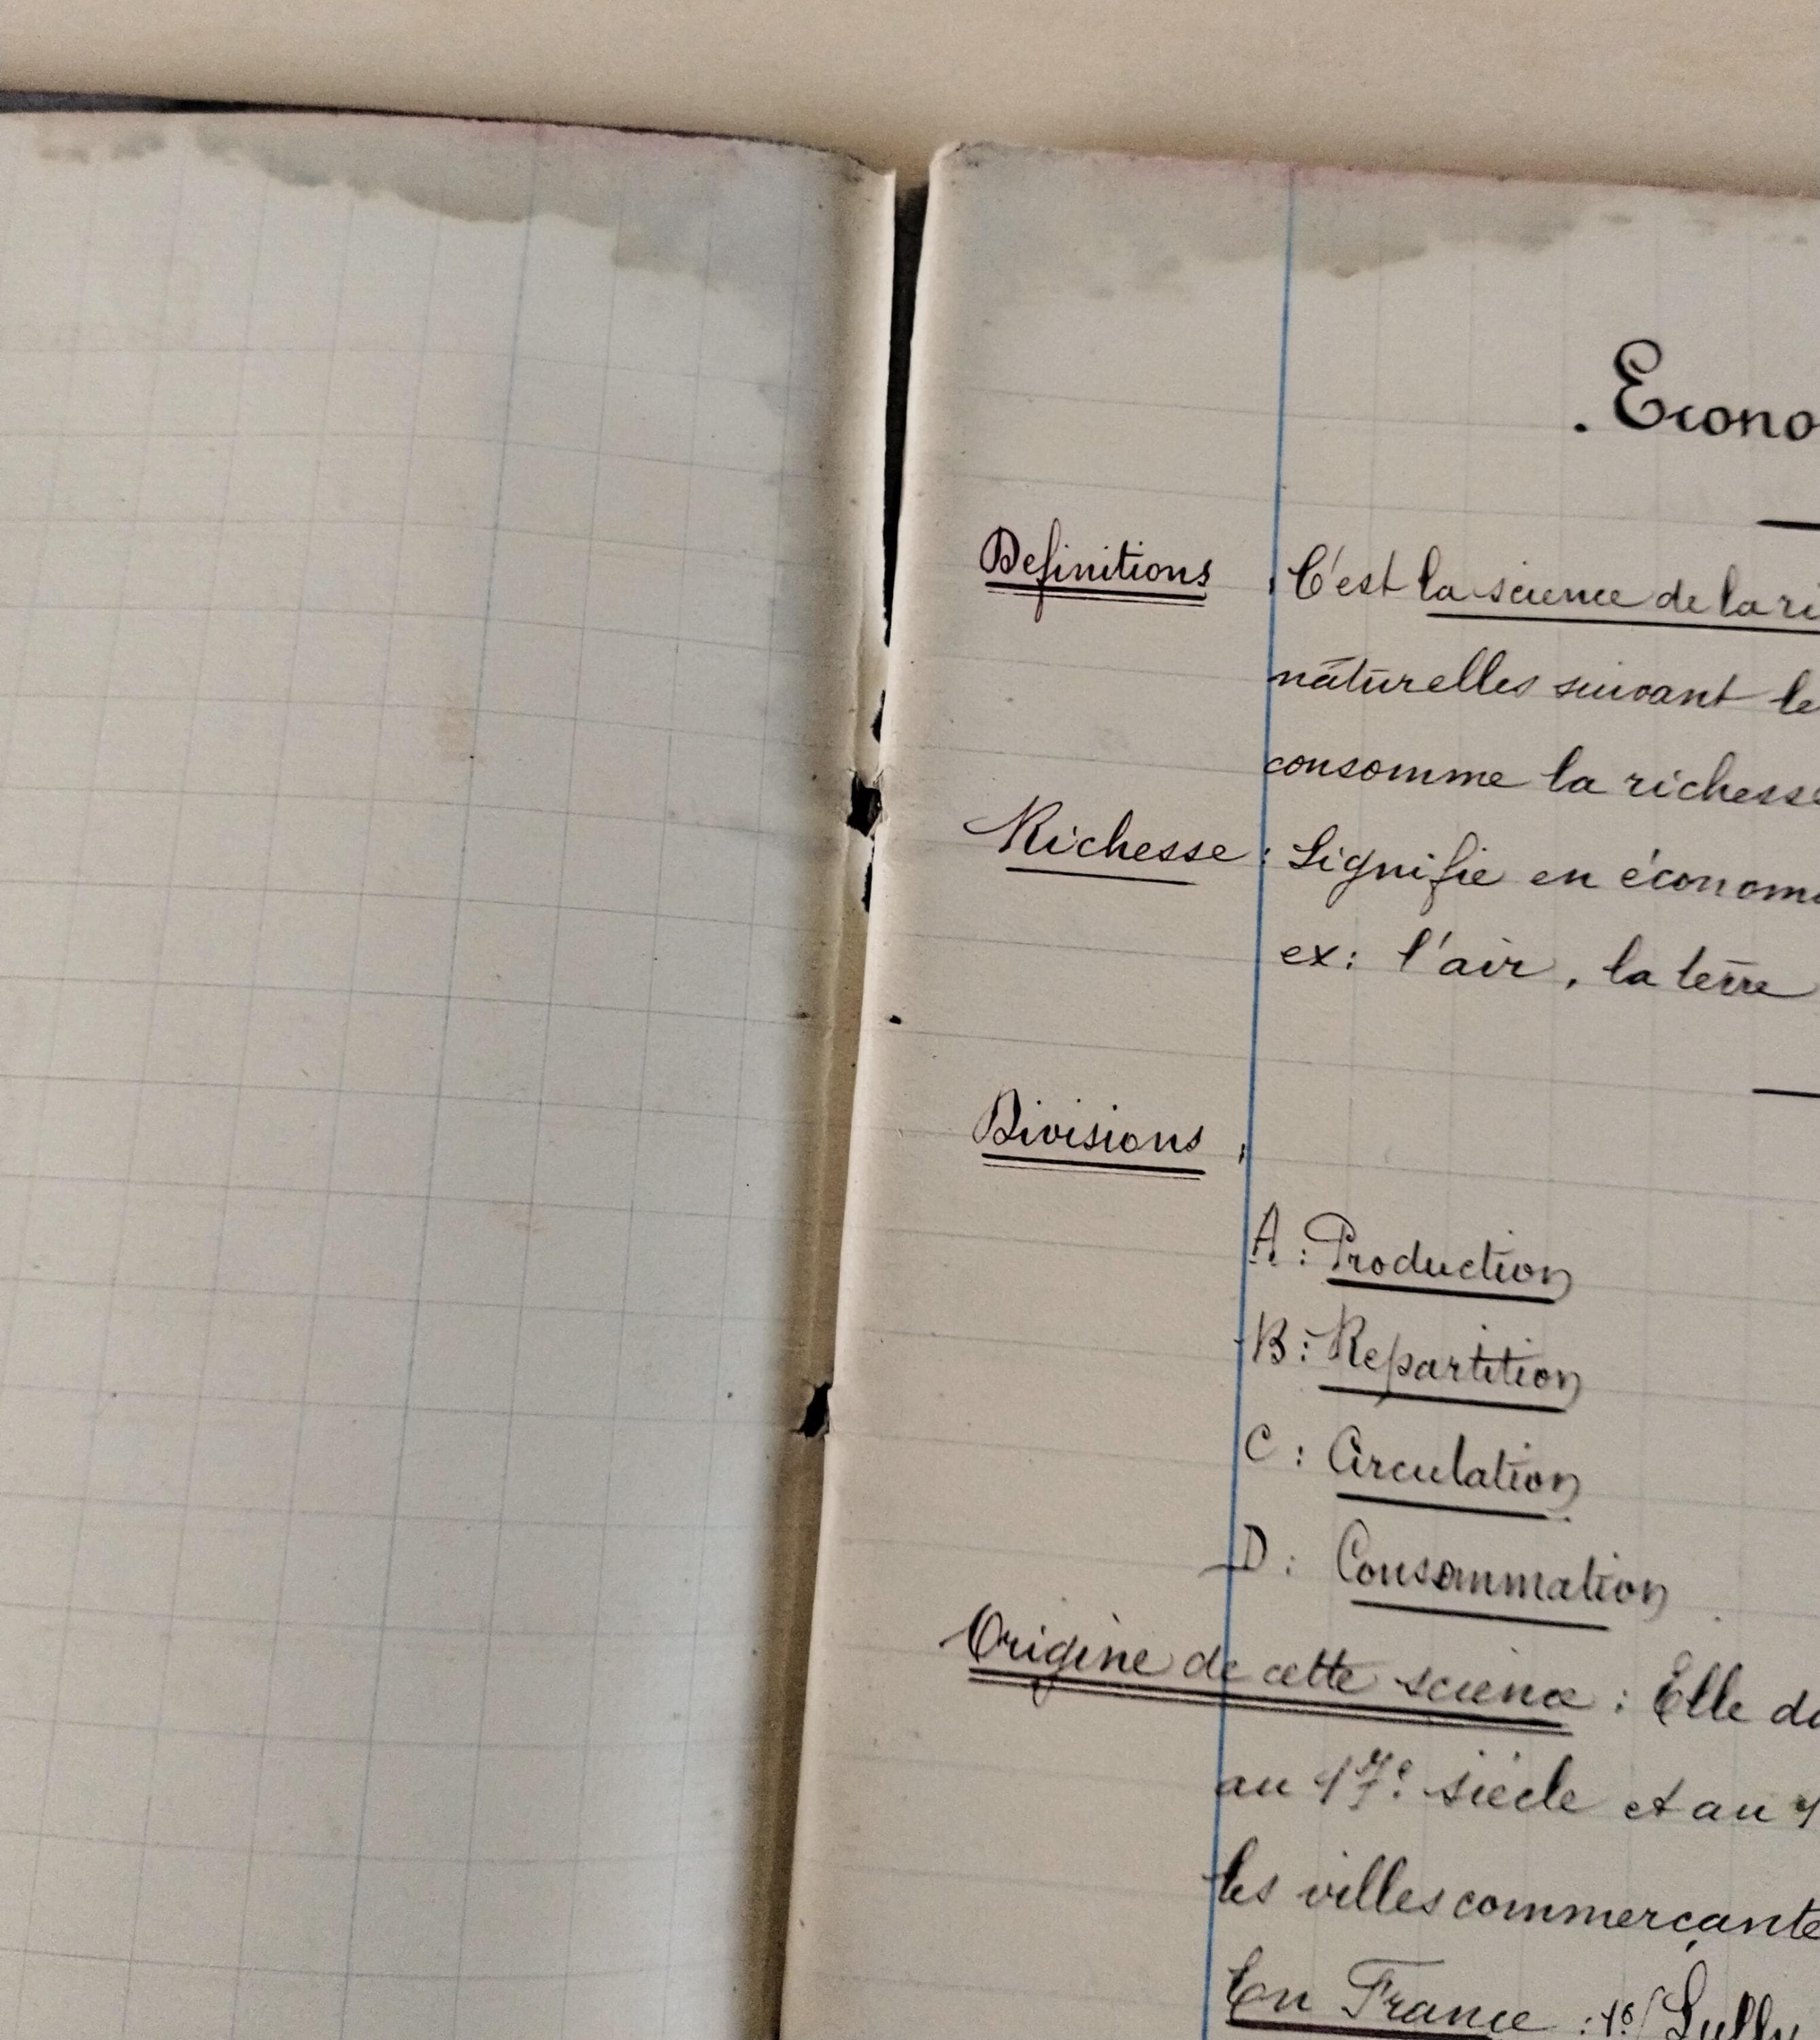 . Econo
Definitions : C'est la science de la ri
naturelles suivant le
consomme la richesse
Richesse : Signifie en économi
ex: l'air, la terre
Divisions :
A : Production
B : Repartition
C : Circulation
D : Consommation
Origine de cette science : Elle da
au 17e siècle et au 1
les villes commerçante
En France : 1º/ Sully